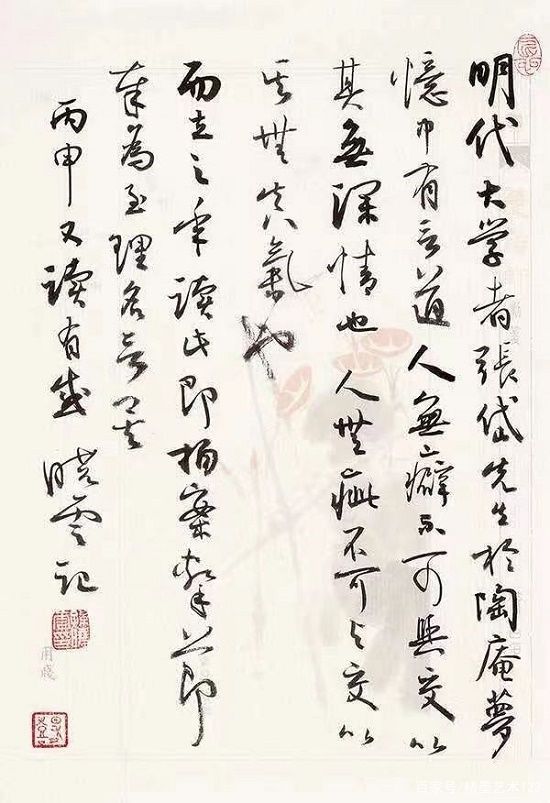 明代大学者張岱先生於陶庵夢
憶中有言道人無癖不可與交以
其無深情也人無疵不可与交以
其無真氣也
而立之年读此即拍案即
奉為至理名言
丙申又读有感 晓雲记
百家号